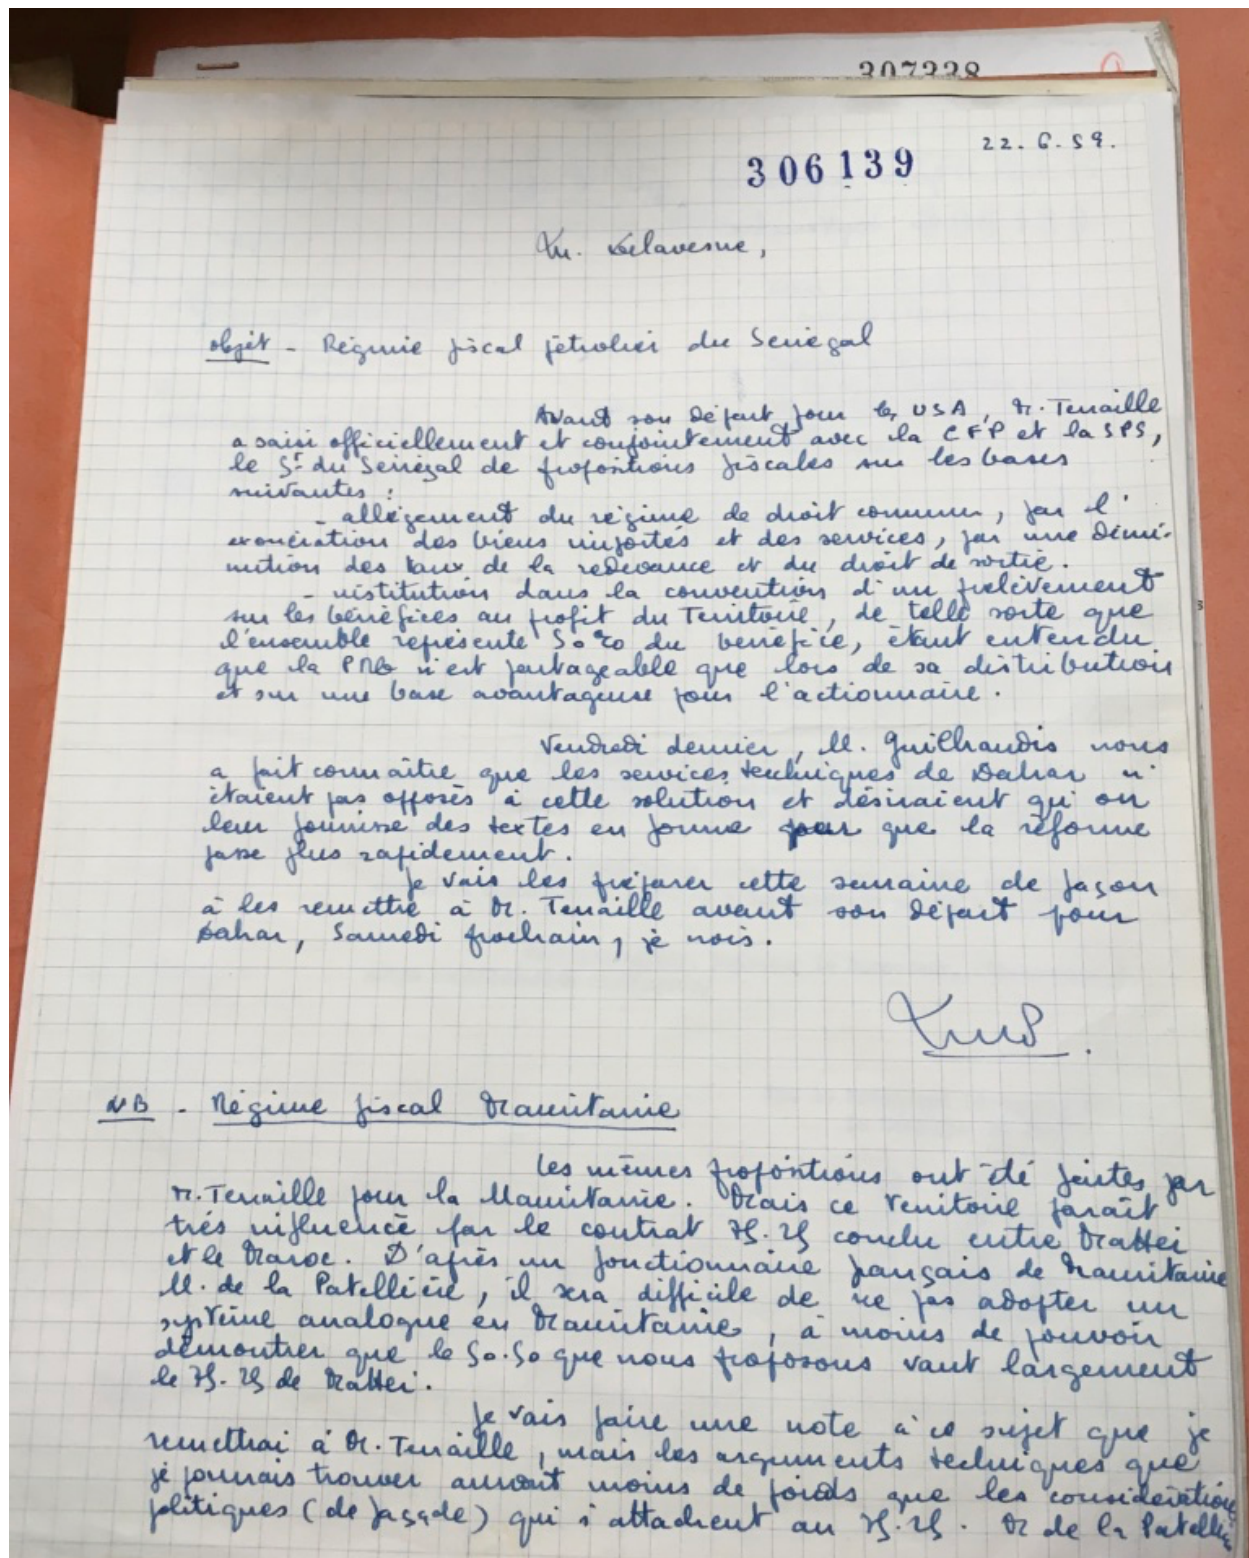 307338
22.6.59.
306139
M. Delavesne,
objet - Régime fiscal pétrolier du Sénégal
Avant son départ pour les USA, M. Tenaille
a saisi officiellement et conjointement avec la CFP et la SPS,
le Gt du Sénégal de propositions fiscales sur les bases
suivantes :
- allègement du régime de droit commun, par l'
exonération des biens importés et des services, par une dimi-
nution des taux de la redevance et du droit de sortie.
- institution dans la convention d'un prélèvement
sur les bénéfices au profit du Territoire, de telle sorte que
l'ensemble représente 50% du bénéfice, étant entendu
que la PRG n'est partageable que lors de sa distribution
et sur une base avantageuse pour l'actionnaire.
Vendredi dernier, M. Guilhaudis nous
a fait connaître que les services techniques de Dakar n'
étaient pas opposés à cette solution et désiraient qu'on
leur fournisse des textes en forme que la réforme
passe plus rapidement.
Je vais les préparer cette semaine de façon
à les remettre à M. Tenaille avant son départ pour
Dakar, Samedi prochain, je crois.
NB - Régime fiscal Mauritanie
Les mêmes propositions ont été faites par
M. Tenaille pour la Mauritanie. Mais ce Territoire paraît
très influencé par le contrat 75.25 conclu entre Mattei
et le Maroc. D'après un fonctionnaire français de Mauritanie
M. de la Patellière, il sera difficile de ne pas adopter un
système analogue en Mauritanie, à moins de pouvoir
démontrer que le 50.50 que nous proposons vaut largement
le 75.25 de Mattei.
Je vais faire une note à ce sujet que je
remettrai à M. Tenaille, mais les arguments techniques que
je pourrais trouver auront moins de poids que les considérations
politiques (de façade) qui s'attachent au 75.25. M de la Patellière